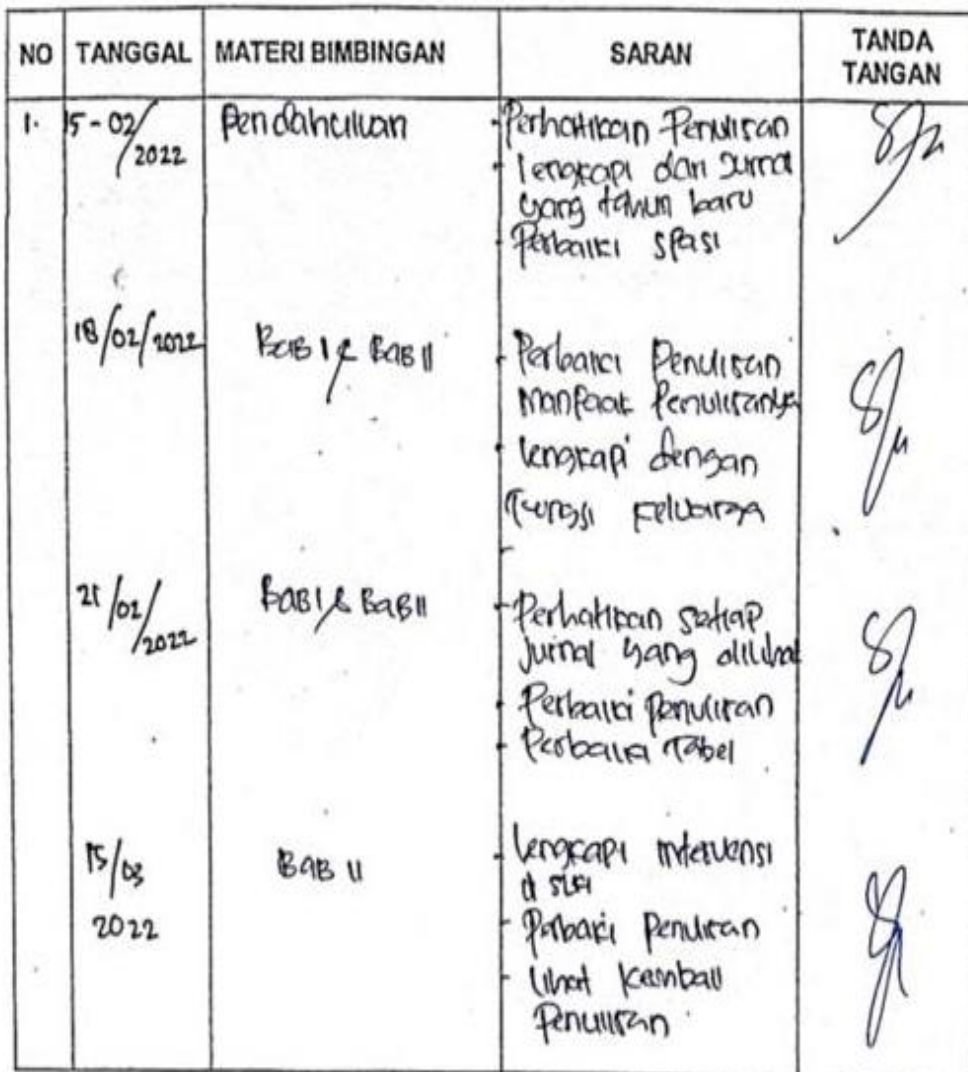 NO TANGGAL MATERI BIMBINGAN SARAN TANDA TANGAN
1. 15-02/2022 Pendahuluan - Perhatikan Penulisan
- lengkapi dari Jurnal
yang tahun baru
- Perbaiki spasi
18/02/2022 BAB I & BAB II - Perbaiki Penulisan
manfaat Penulisannya
- lengkapi dengan
fungsi keluarga
21/02/2022 BAB I & BAB II - Perhatikan setiap
jurnal yang dilihat
- Perbaiki penulisan
- Perbaiki Tabel
15/03 2022 BAB II - lengkapi intervensi
- Perbaiki Penulisan
- lihat kembali
Penulisan